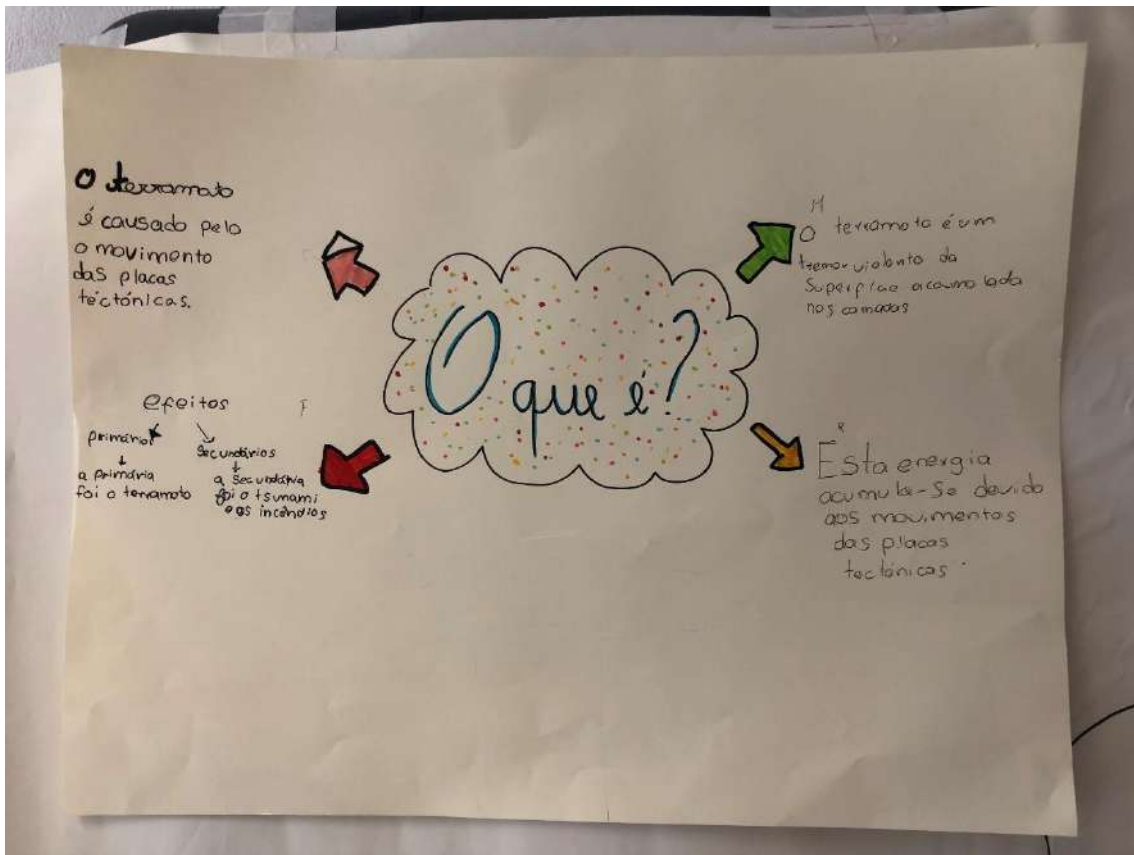 O terramoto
é causado pelo
o movimento
das placas
tectónicas.
O que é?
M
O terramoto é um
tremor violento da
Superfície acoumolada
nas camadas
efeitos
F
primário
secundários
a primária
foi o terramoto
a secundária
foi o tsunami
e os incêndios
R
Esta energia
acumula-se devido
aos movimentos
das placas
tectónicas.